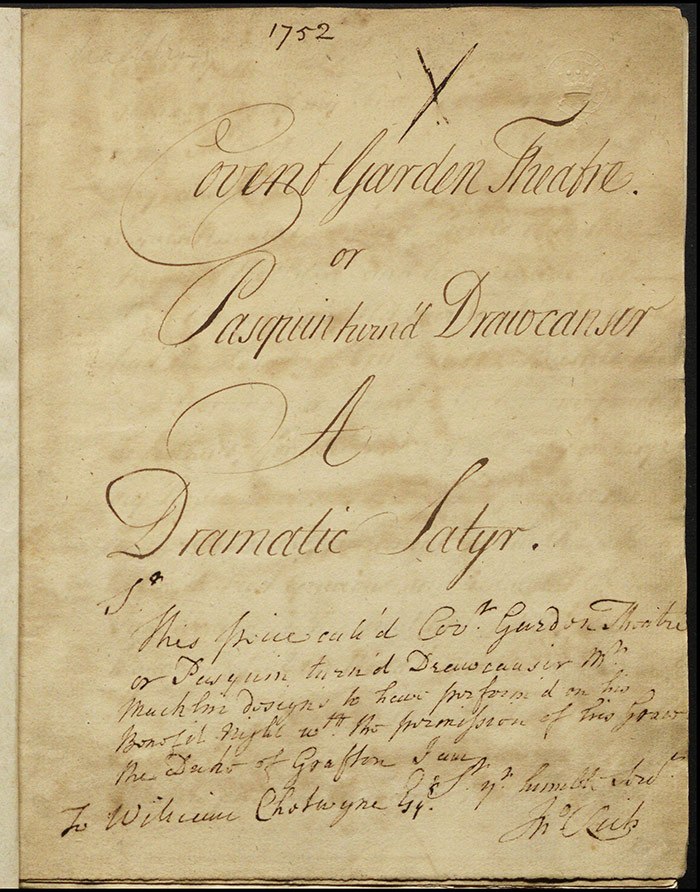 1752
X
Covent Garden Theatre.
or
Pasquin turn'd Drawcansir
A
Dramatic Satyr.
Sr
This peice call'd Covt. Garden Theatre
or Pasquin turn'd Drawcansir Mr.
Macklin designs to have perform'd on his
Benefit Night wth. the permission of his Grace
the Duke of Grafton I am
Sr. yr. humble Servt.
To William Chetwynd Esqr.
Jno. Rich